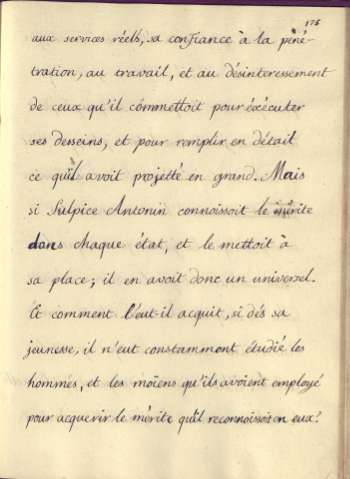 175
aux services réels, sa confiance à la péné-
tration, au travail, et au désinteressement
de ceux qu'il commettoit pour éxécuter
ses desseins, et pour remplir en détail
ce qu'il avoit projetté en grand. Mais
si Sulpice Antonin connoissoit le mérite
dans chaque état, et le mettoit à
sa place; il en avoit donc un universel.
Et comment l'eut-il acquit, si dés sa
jeunesse, il n'eut constamment étudié les
hommes, et les moïens qu'ils avoient employé
pour acquerir le mérite qu'il reconnoissoit en eux?